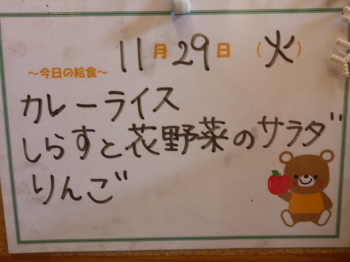 11月29日(火)
～今日の給食～
カレーライス
しらすと花野菜のサラダ
りんご